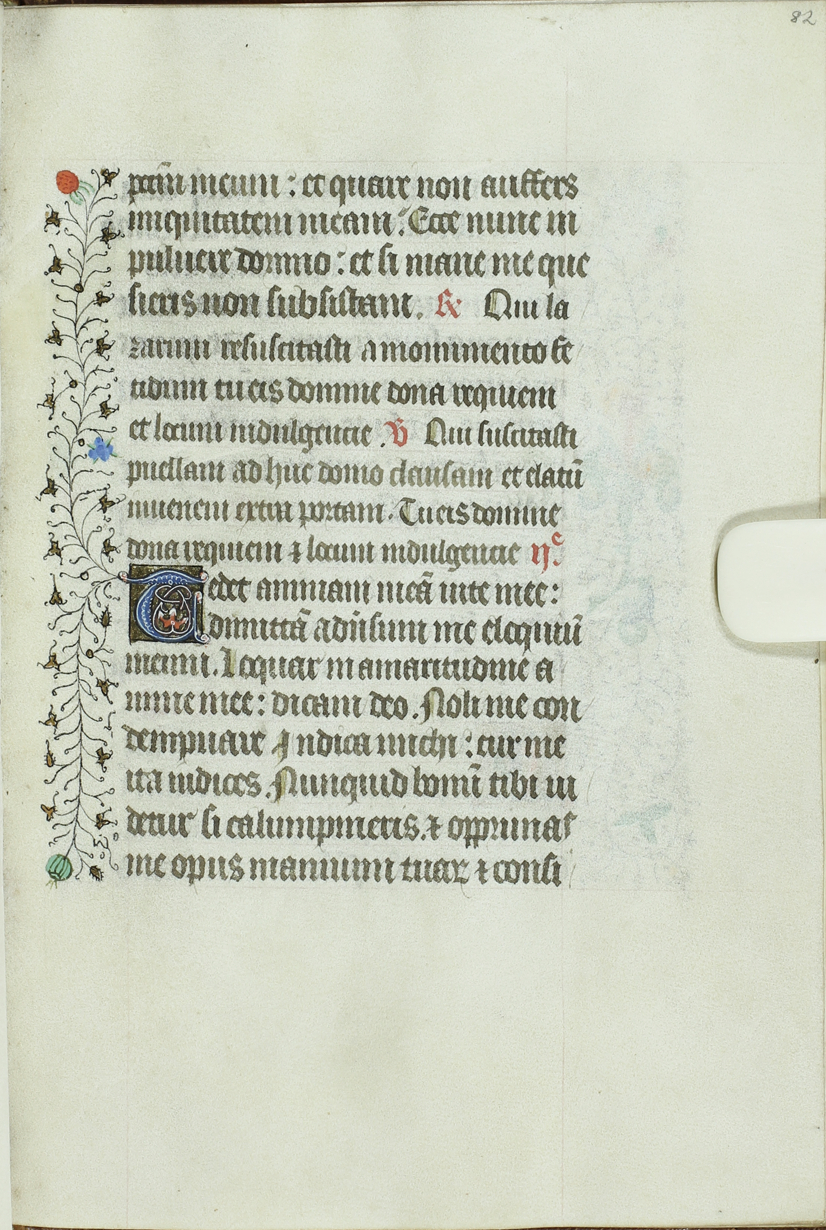 82
pctm̄ meum : et quare non auffers
iniquitatem meam : Ecce nunc in
puluere dormio : et si mane me que
sieris non subsistam . ℟ Qui la
zarum resuscitasti a monumento fe
tidum tu eis domine dona requiem
et locum indulgencie . ℣ Qui suscitasti
puellam ad huc domo clausam et elatū
iuuenem extra portam . Tu eis domine
dona requiem ⁊ locum indulgencie ijᶜ.
Tedet animam meā vite mee :
dimittā aduersum me eloquiū
meum . Loquar in amaritudine a
nime mee : dicam deo . Noli me con
dempnare Indica michi : cur me
ita iudices . Nunquid bonū tibi ui
detur si calumpnieris . ⁊ opprimas
me opus manuum tuaꝝ ⁊ consi